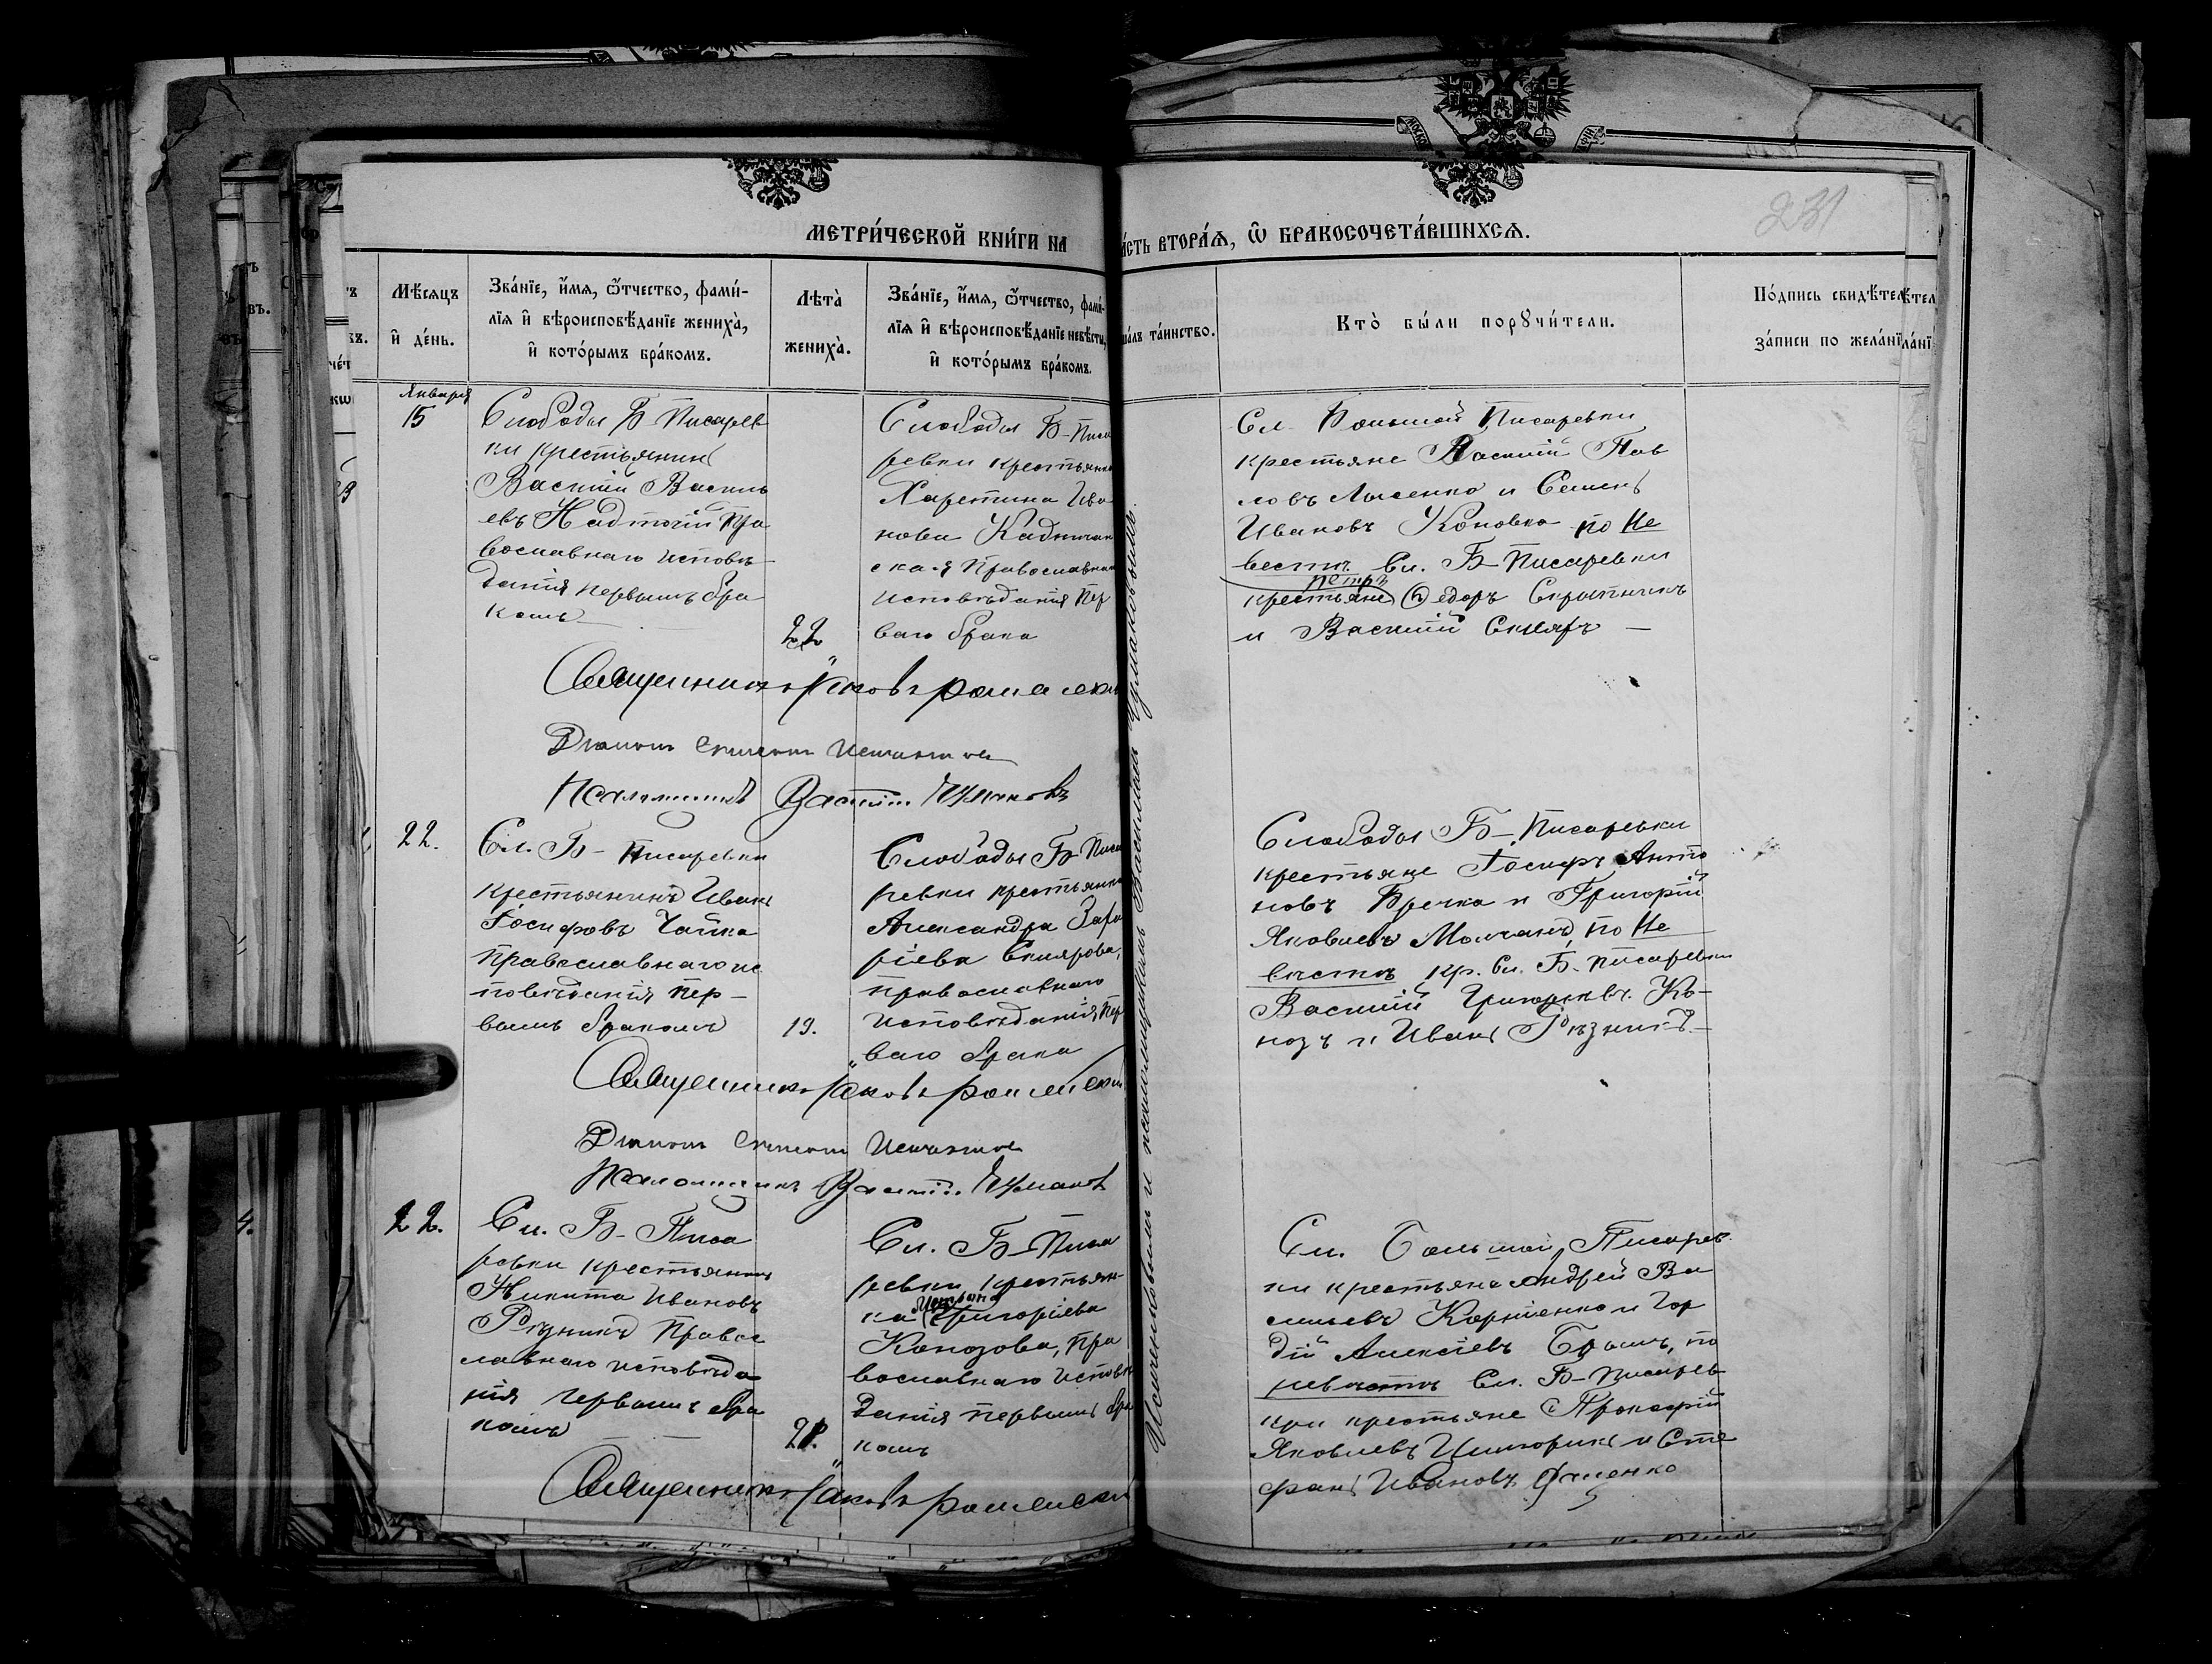 231
МЕТРИ́ЧЕСКОЙ КНИ́ГИ НА
ЧА́СТЬ ВТОРА́Ѧ, Ѽ БРАКОСОЧЕТА́ВШИХСѦ.
Мѣ́сяцъ и҆ де́нь.
Зва́нїе, и҆́мя, ѻ҆́тчество, фами́-
лїя и҆ вѣроисповѣ́данїе жениха̀,
и҆ кото́рымъ бра́комъ.
Лѣта̀
жениха̀.
Зва́нїе, и҆́мя, ѻ҆́тчество, фами́-
лїя и҆ вѣроисповѣ́данїе невѣ́сты,
и҆ кото́рымъ бра́комъ.
та́инство.
Кто̀ бы́ли порꙋчи́тели.
По́дпись свидѣ́тел
за́писи по жела́нї
Января
15
Слободы Б-Писарев
ки крестьянинъ
Василій Василь
евъ Надточій Пра
вославнаго исповѣ
данія первымъ бра
комъ
22
Слободы Б-Писа
ревки крестьянка
Харетина Ива
нова
ская Православнаго
исповѣданія пер
ваго брака
Сл. Большой Писаревки
крестьяне Василій Пав
ловъ Лысенко и Семенъ
Ивановъ Коновка по Не
вестѣ Сл. Б-Писаревки
крестьяне Петръ Ѳедоръ Скрипникъ
и Василій Скляръ
Священникъ Іаковъ
Діаконъ
Псаломщикъ Василій
22.
Сл. Б-Писаревки
крестьянинъ Иванъ
Іосифовъ Чайка
Православнаго ис
повѣданія пер-
вымъ бракомъ
19.
Слободы Б-Писа
ревки крестьянка
Александра Заха
ріева Склярова,
православнаго
исповѣданія пер
ваго брака
Слободы Б-Писаревки
крестьяне Іосифъ Анто
новъ Бречка и Григорій
Яковлевъ Молчанъ, по Не
вѣстѣ кр. Сл. Б. Писаревки
Василій Григорьевъ Ко-
нозъ и Иванъ Рѣзникъ
Священникъ Іаковъ
Діаконъ
Псаломщикъ Василій
22.
Сл. Б-Писа
ревки крестьянинъ
Никита Ивановъ
Рѣзникъ Правос
лавнаго исповѣда
нія первымъ бра
комъ
21.
Сл. Б-Писа
ревки крестьян-
ка Григоріева
Конозова, Пра
вославнаго исповѣ
данія первымъ бра
комъ
Сл. Большой Писарев
ки крестьяне Андрей Ва
сильевъ Корніенко и Гор
дій Алексіевъ по
невѣстѣ Сл. Б-Писарев
ки крестьяне Прокофій
Яковлевъ и Сте
фанъ Ивановъ
Священникъ Іаковъ